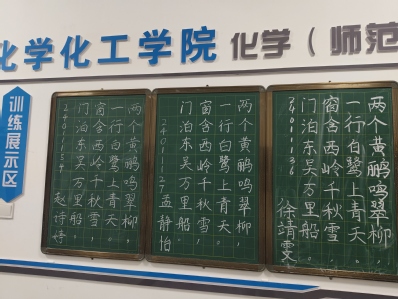 化学化工学院 化学（师范
训练展示区
两个黄鹂鸣翠柳，
一行白鹭上青天。
窗含西岭千秋雪，
门泊东吴万里船。
2401154 赵诗婷
两个黄鹂鸣翠柳，
一行白鹭上青天。
窗含西岭千秋雪，
门泊东吴万里船。
2401127 孟静怡
两个黄鹂鸣翠柳，
一行白鹭上青天。
窗含西岭千秋雪，
门泊东吴万里船。
2401136 徐靖雯